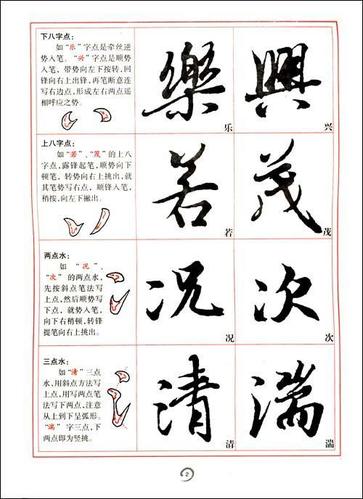 下八字点：
如“乐”字点是牵丝逆
势入笔。“兴”字点是顺势
入笔，带势向左下按转，回
锋向右上出锋，再笔断意连
写右边点，形成左右两点遥
相呼应之势。
樂
乐
興
兴
上八字点：
如“若”、“茂”的上八
字点，露锋起笔，顺势向下
顿笔，转势向右上挑出，就
其笔势写右点，顺锋入笔，
稍按，向左下撇出。
若
若
茂
茂
两点水：
如“况”、
“次”的两点水，
先按斜点笔法写
上点，然后顺势写
下点，就势入笔，
向下右稍顿，转锋
提笔向右上挑出。
况
况
次
次
三点水：
如“清”三点
水，用斜点方法写
上点，用写两点笔
法写下两点，注意
从上到下呈弧形。
“湍”字三点水，下
两点即为竖挑。
清
清
湍
湍
2